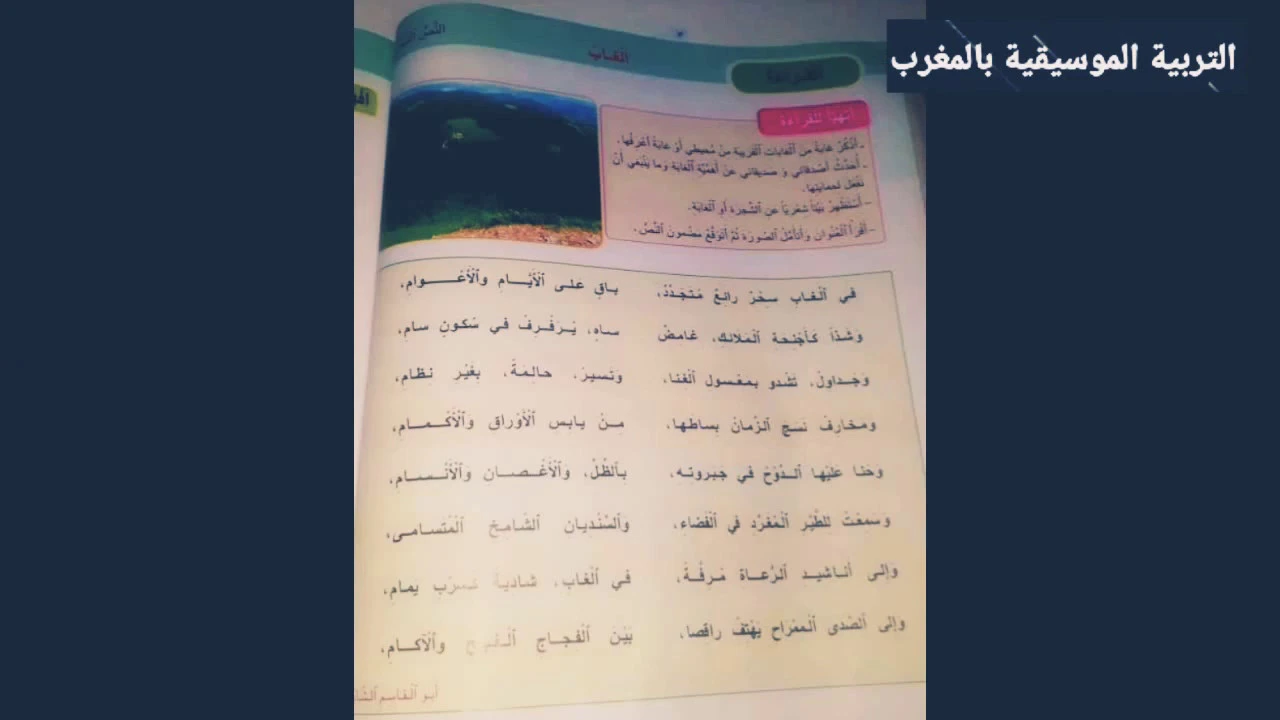 التربية الموسيقية بالمغرب
النص
الغاب
القراءة
أتهيأ للقراءة
- أتذكر غابة من ٱلغابات ٱلقريبة من محيطي أو غابة أعرفها.
- أحدث أصدقائي و صديقاتي عن أهمية ٱلغابة وما ينبغي أن
نفعل لحمايتها.
- أستظهر بيتا شعريا عن ٱلشجرة أو ٱلغابة.
- أقرأ ٱلعنوان وأتأمل ٱلصورة ثم أتوقع مضمون ٱلنص.
في ٱلغاب سحر رائع متجدد، باق على ٱلأيـام وٱلأعـوام،
وشذا كأجنحة ٱلملائك، غامض ساه، يرفرف في سكون سام،
وجداول، تشدو بمعسول ٱلغنا، وتسير، حالمة، بغير نظام،
ومخارف نسج ٱلزمان بساطها، من يابس ٱلأوراق وٱلأكمام،
وحنا عليها ٱلدوح في جبروته، بٱلظل، وٱلأغصان وٱلأنسام،
وسمعت للطير ٱلمغرد في ٱلفضاء، وٱلسنديان ٱلشامخ ٱلمتسامى،
وإلى أناشيد ٱلرعاة مرفة، في ٱلغاب، شادية كسرب يمام،
وإلى ٱلصدى ٱلممراح يهتف راقصا، بين ٱلفجاج ٱلفيح وٱلآكام،
أبو ٱلقاسم